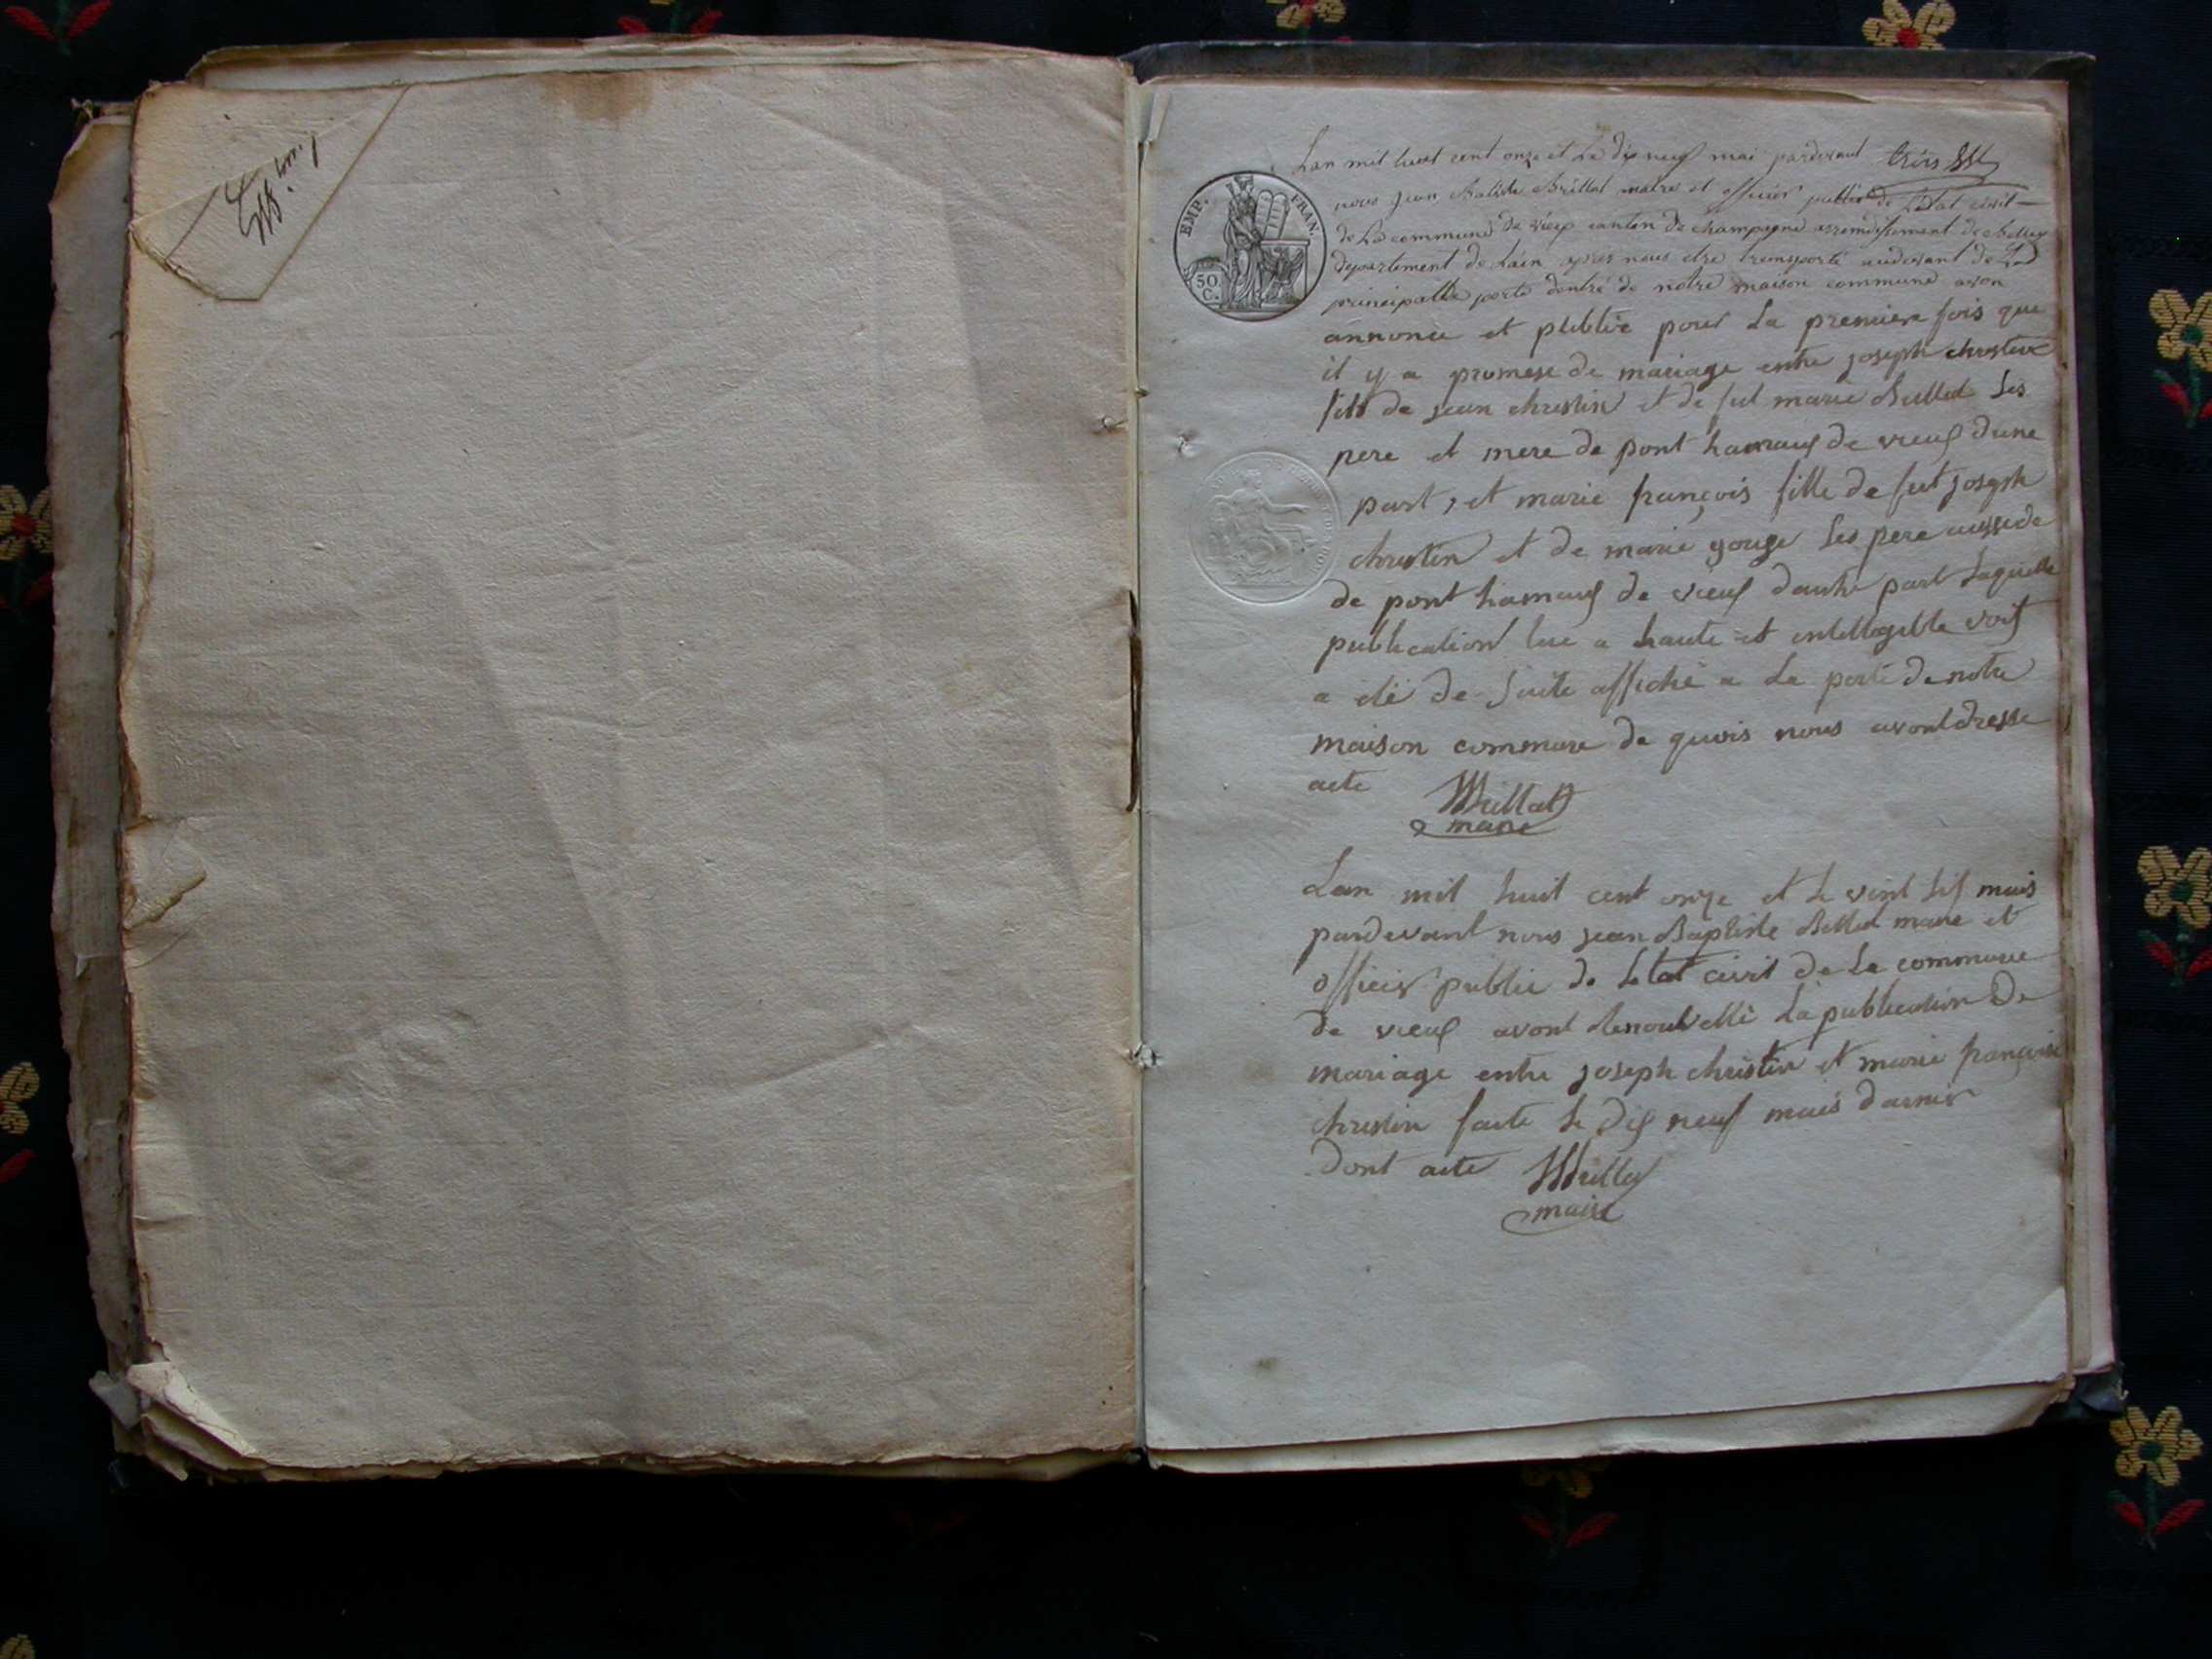 EMP. FRAN.
50 C.
Lan mil huit cent onze et le dix neuf mai pardevant
nous jean Batiste Brillat maire et officier public de Letat civil
de La commune de vieux canton de champagne arrondissement de Belley
departement de Lain après nous etre transporté audevant de La
principalle porte dentré de notre maison commune avon
annoncé et publié pour La premiere fois que
il y a promese de mariage entre joseph christin
fils de jean christin et de fut marie Billiet Ses
pere et mere de pont hamauf de vieuf dune
part, et marie françois fille de fut joseph
christin et de marie gouge Ses pere aussede
de pont hamauf de vieuf dautre part Laquelle
publication lue a haute et intellegible voif
a été de Suite affiché a La porte de notre
maison commune de quois nous avont dresse
acte
Brillat
maire
Lan mil huit cent onze et le vint sif mais
pardevant nous jean Baptiste Billiet maire et
officier public de Letat civil de La commune
de vieuf avont Renouvellé La publication De
mariage entre joseph christin et marie françoise
christin faite le dif neuf mais darnier
Dont acte
maire